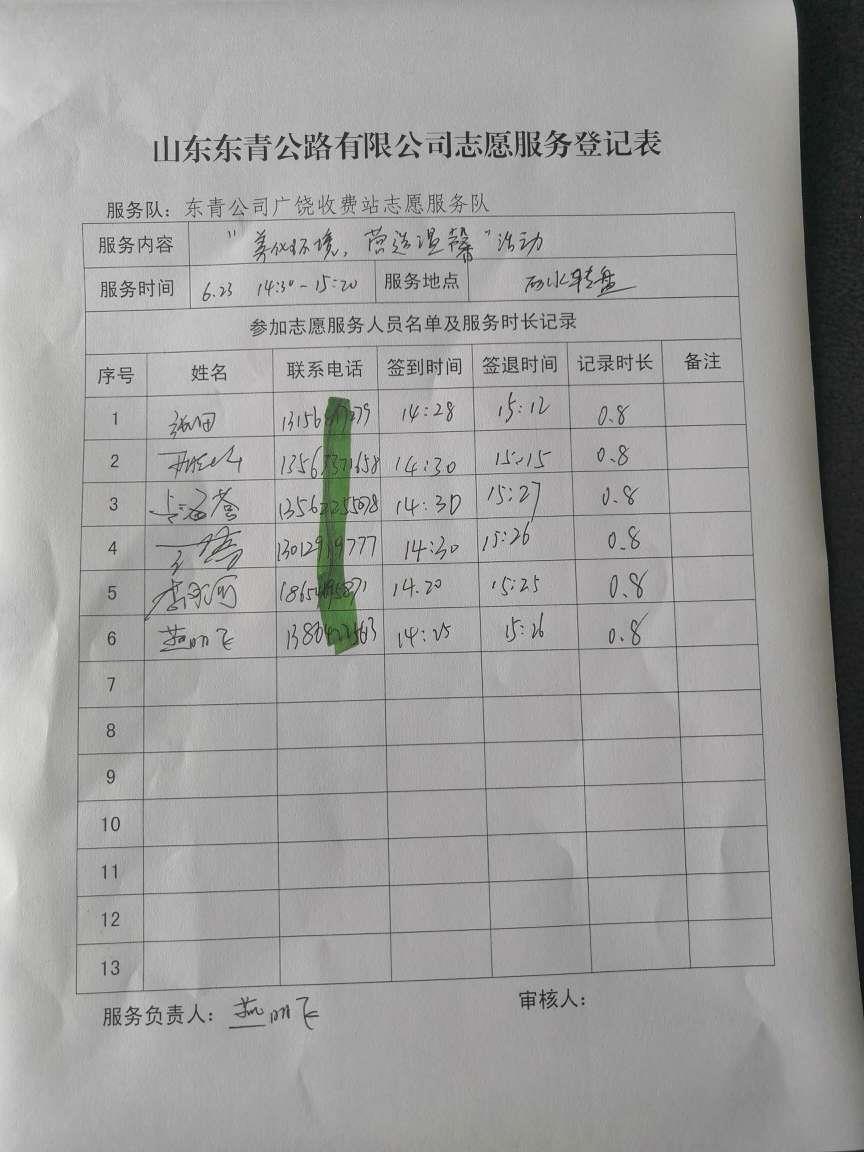 山东东青公路有限公司志愿服务登记表
服务队：东青公司广饶收费站志愿服务队
服务内容 “美化环境，营造温馨”活动
服务时间 6.23 14:30-15:20 服务地点 转盘
参加志愿服务人员名单及服务时长记录
序号 姓名 联系电话 签到时间 签退时间 记录时长 备注
1 14:28 15:12 0.8
2 14:30 15:15 0.8
3 14:30 15:27 0.8
4 14:30 15:26 0.8
5 14.20 15:25 0.8
6 燕明飞 14:25 15:26 0.8
7
8
9
10
11
12
13
服务负责人：燕明飞 审核人：